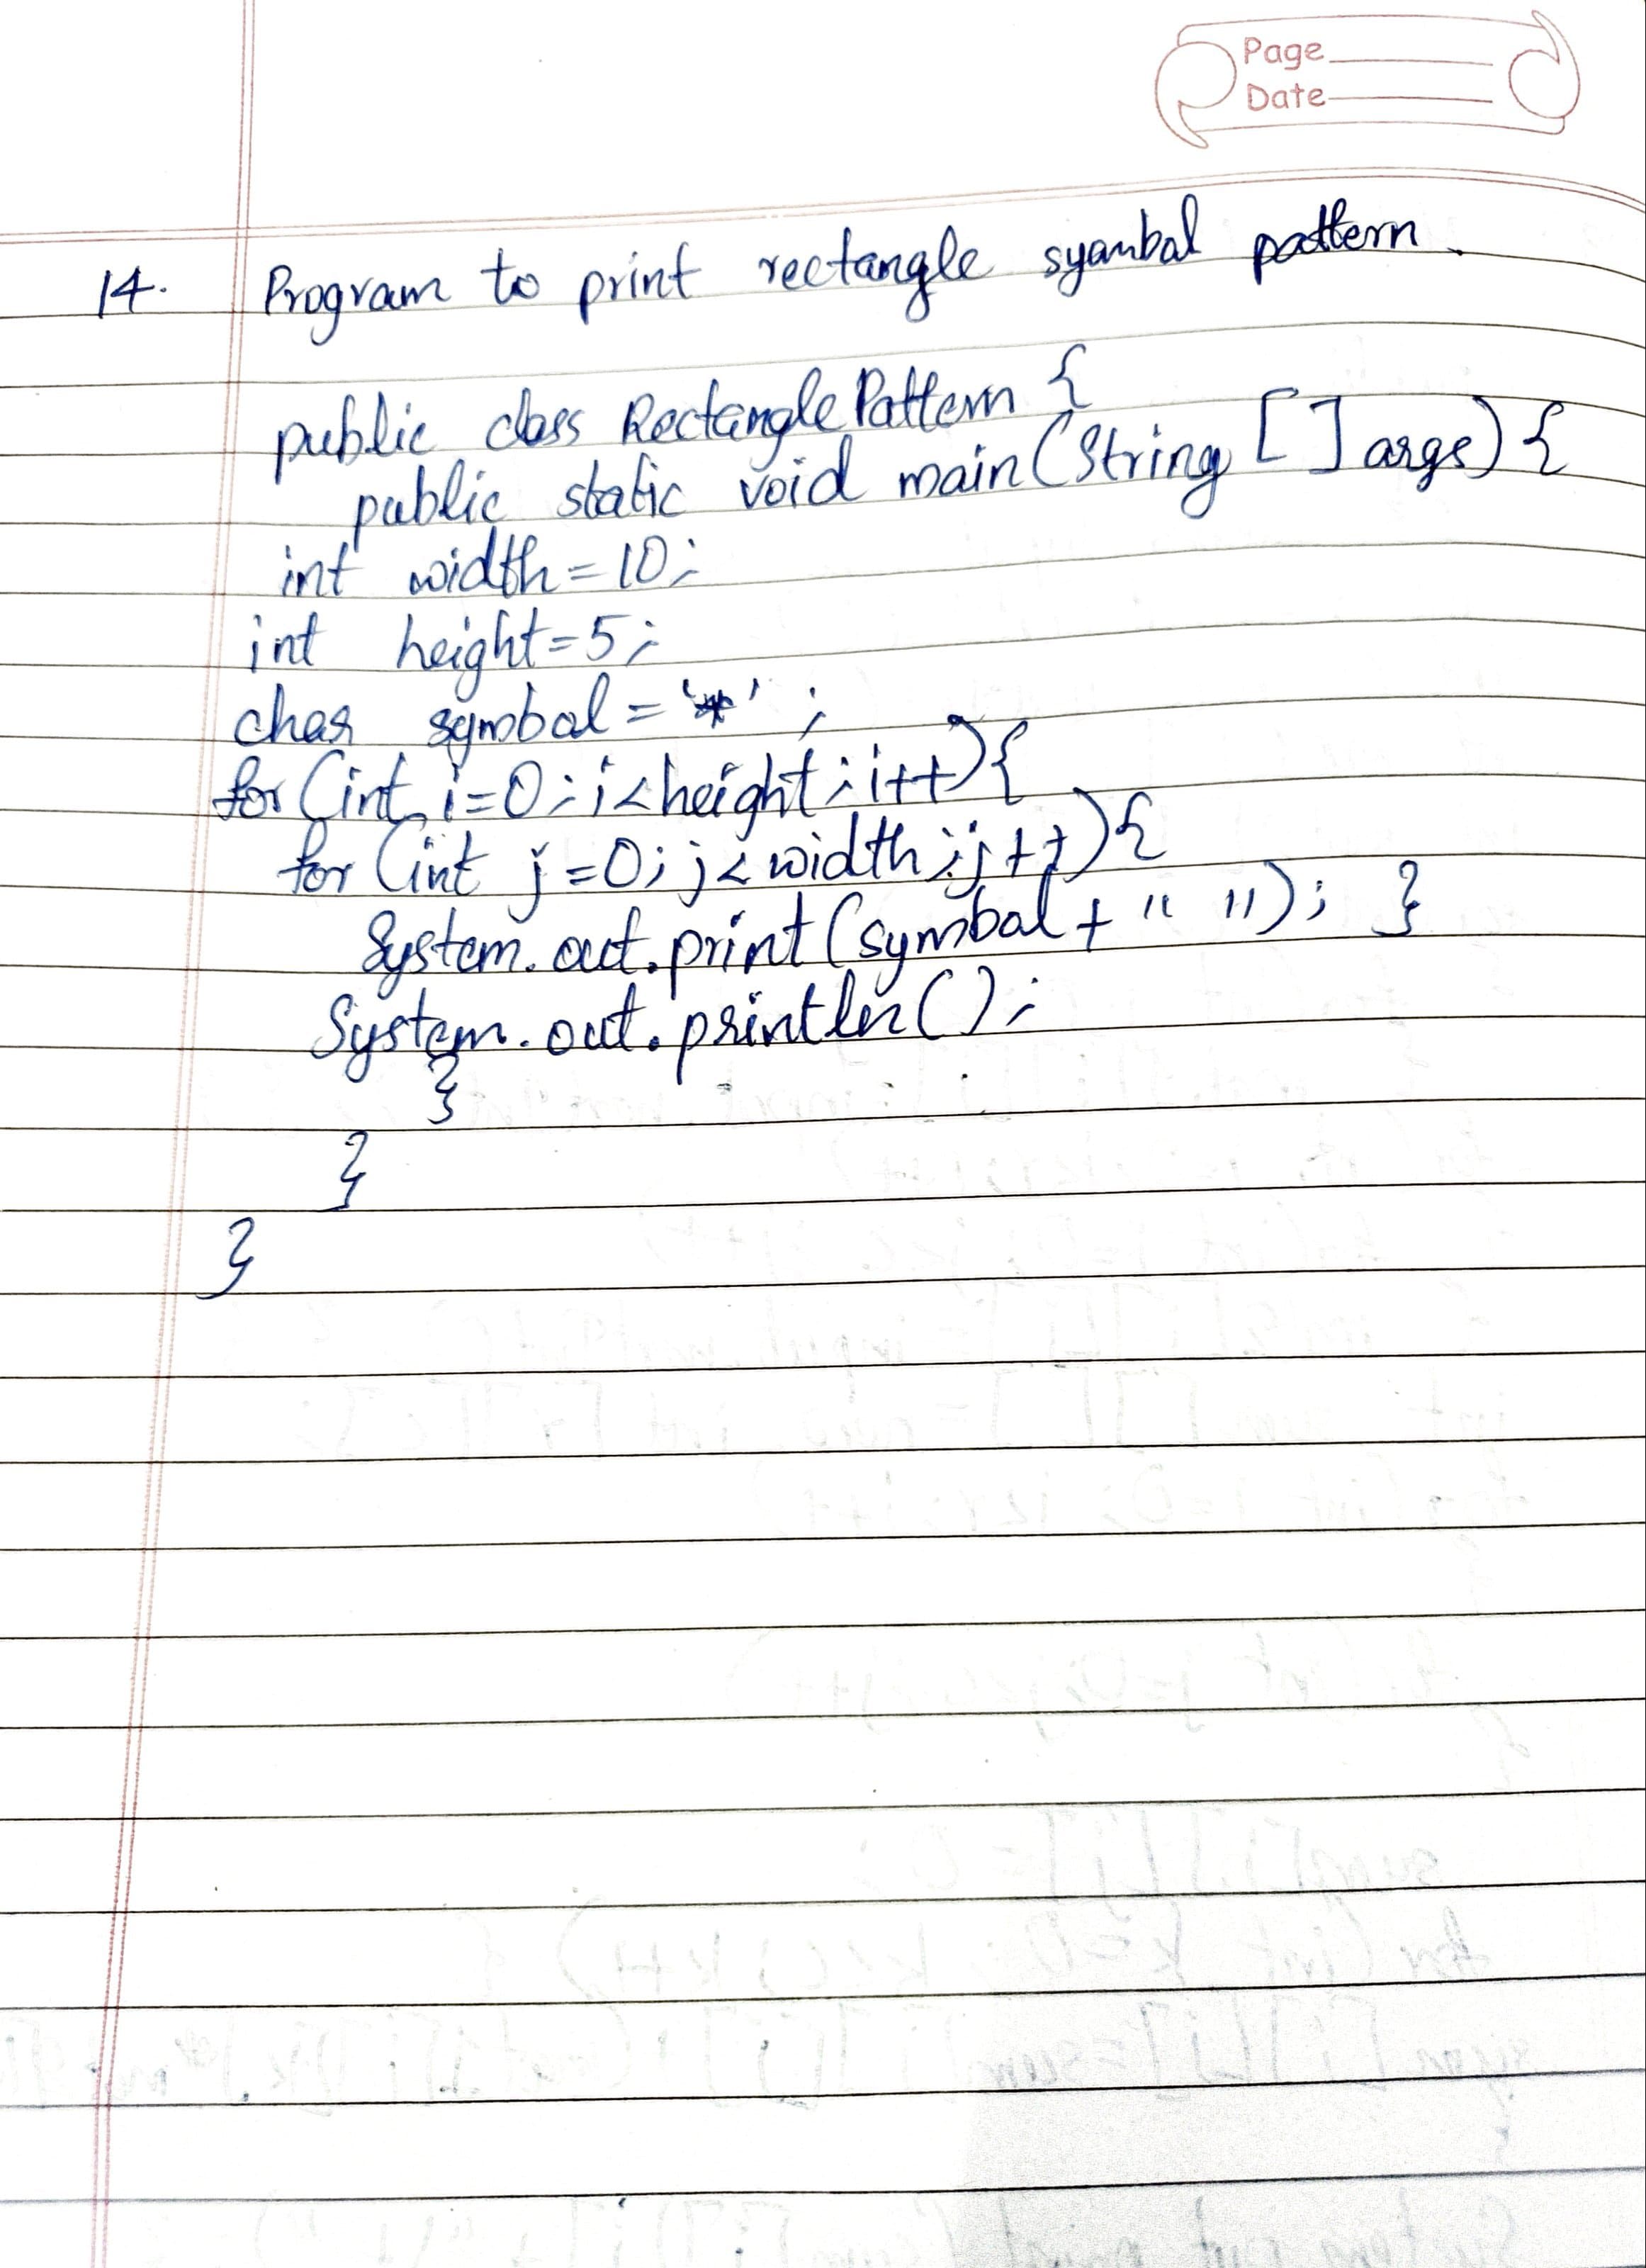 Page
Date
14. Program to print rectangle syambal pattern.
public class RectanglePattern {
public static void main(String [] args) {
int width = 10;
int height = 5;
char symbal = '*' ;
for (int i=0; i<height; i++){
for (int j=0; j<width; j++){
System.out.print(symbal + " "); }
System.out.println();
}
}
}